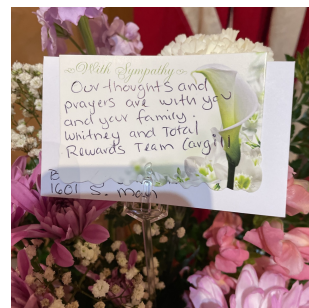 With Sympathy
Our thoughts and
prayers are with you
and your family.
Whitney and Total
Rewards Team Cargill
B
1601 S. Main